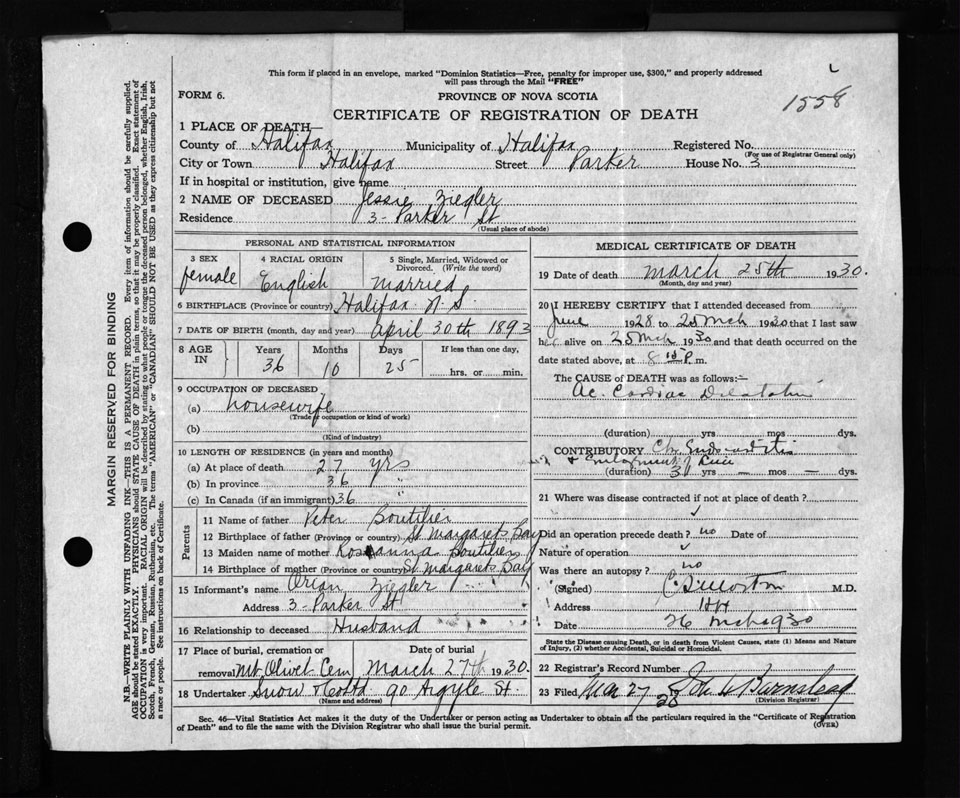 This form if placed in an envelope, marked "Dominion Statistics—Free, penalty for improper use, $300," and properly addressed
will pass through the Mail "FREE"
FORM 6.
PROVINCE OF NOVA SCOTIA
1558
CERTIFICATE OF REGISTRATION OF DEATH
1 PLACE OF DEATH
County of Halifax Municipality of Halifax Registered No.
(For use of Registrar General only)
City or Town Halifax Street Parker House No. 3
If in hospital or institution, give name
2 NAME OF DECEASED Jessie Ziegler
Residence 3 - Parker St
(Usual place of abode)
PERSONAL AND STATISTICAL INFORMATION
3 SEX 4 RACIAL ORIGIN 5 Single, Married, Widowed or Divorced. (Write the word)
female English Married
6 BIRTHPLACE (Province or country) Halifax N.S.
7 DATE OF BIRTH (month, day and year) April 30th 1893
8 AGE IN Years Months Days If less than one day,
36 10 25 hrs. or min.
9 OCCUPATION OF DECEASED
(a) Housewife
(Trade or occupation or kind of work)
(b)
(Kind of industry)
10 LENGTH OF RESIDENCE (in years and months)
(a) At place of death 27 yrs
(b) In province 36 "
(c) In Canada (if an immigrant) 36 "
Parents
11 Name of father Peter Boutilier
12 Birthplace of father (Province or country) St Margarets Bay
13 Maiden name of mother Rosanna Boutilier
14 Birthplace of mother (Province or country) St Margarets Bay
15 Informant's name Orian Ziegler
Address 3 - Parker St
16 Relationship to deceased Husband
17 Place of burial, cremation or removal Mt. Olivet Cem Date of burial March 27th 1930.
18 Undertaker Snow & Costa 90 Argyle St.
(Name and address)
MEDICAL CERTIFICATE OF DEATH
19 Date of death March 25th 1930.
(Month, day and year)
20 I HEREBY CERTIFY that I attended deceased from
June 1928 to 25 Mch 1930 that I last saw
h alive on 25 Mch 1930 and that death occurred on the
date stated above, at 8 15 P. m.
The CAUSE OF DEATH was as follows:—
Ac. Cardiac Dilatation
(duration) yrs mos dys.
CONTRIBUTORY Ch. Endocarditis
&
(duration) yrs — mos — dys.
21 Where was disease contracted if not at place of death?
Did an operation precede death? no Date of
Nature of operation
Was there an autopsy? no
(Signed) Morton M.D.
Address Hfx
Date 26 Mch 1930
State the Disease causing Death, or in death from Violent Causes, state (1) Means and Nature
of Injury, (2) whether Accidental, Suicidal or Homicidal.
22 Registrar's Record Number
23 Filed Mar 27 19 John Burnstead
28
(Division Registrar)
Sec. 46—Vital Statistics Act makes it the duty of the Undertaker or person acting as Undertaker to obtain all the particulars required in the "Certificate of Registration
of Death" and to file the same with the Division Registrar who shall issue the burial permit.
(OVER)
MARGIN RESERVED FOR BINDING
N.B.—WRITE PLAINLY WITH UNFADING INK—THIS IS A PERMANENT RECORD. Every item of information should be carefully supplied.
AGE should be stated EXACTLY. PHYSICIANS should STATE CAUSE OF DEATH in plain terms, so that it may be properly classified. Exact statement of
OCCUPATION is very important. RACIAL ORIGIN will be described by stating to what people or tongue the deceased person belonged, whether English, Irish,
Scotch, French, German, Russian, Ruthenian, etc. The terms "AMERICAN" or "CANADIAN" SHOULD NOT BE USED as they express citizenship but not
a race or people. See instructions on back of Certificate.